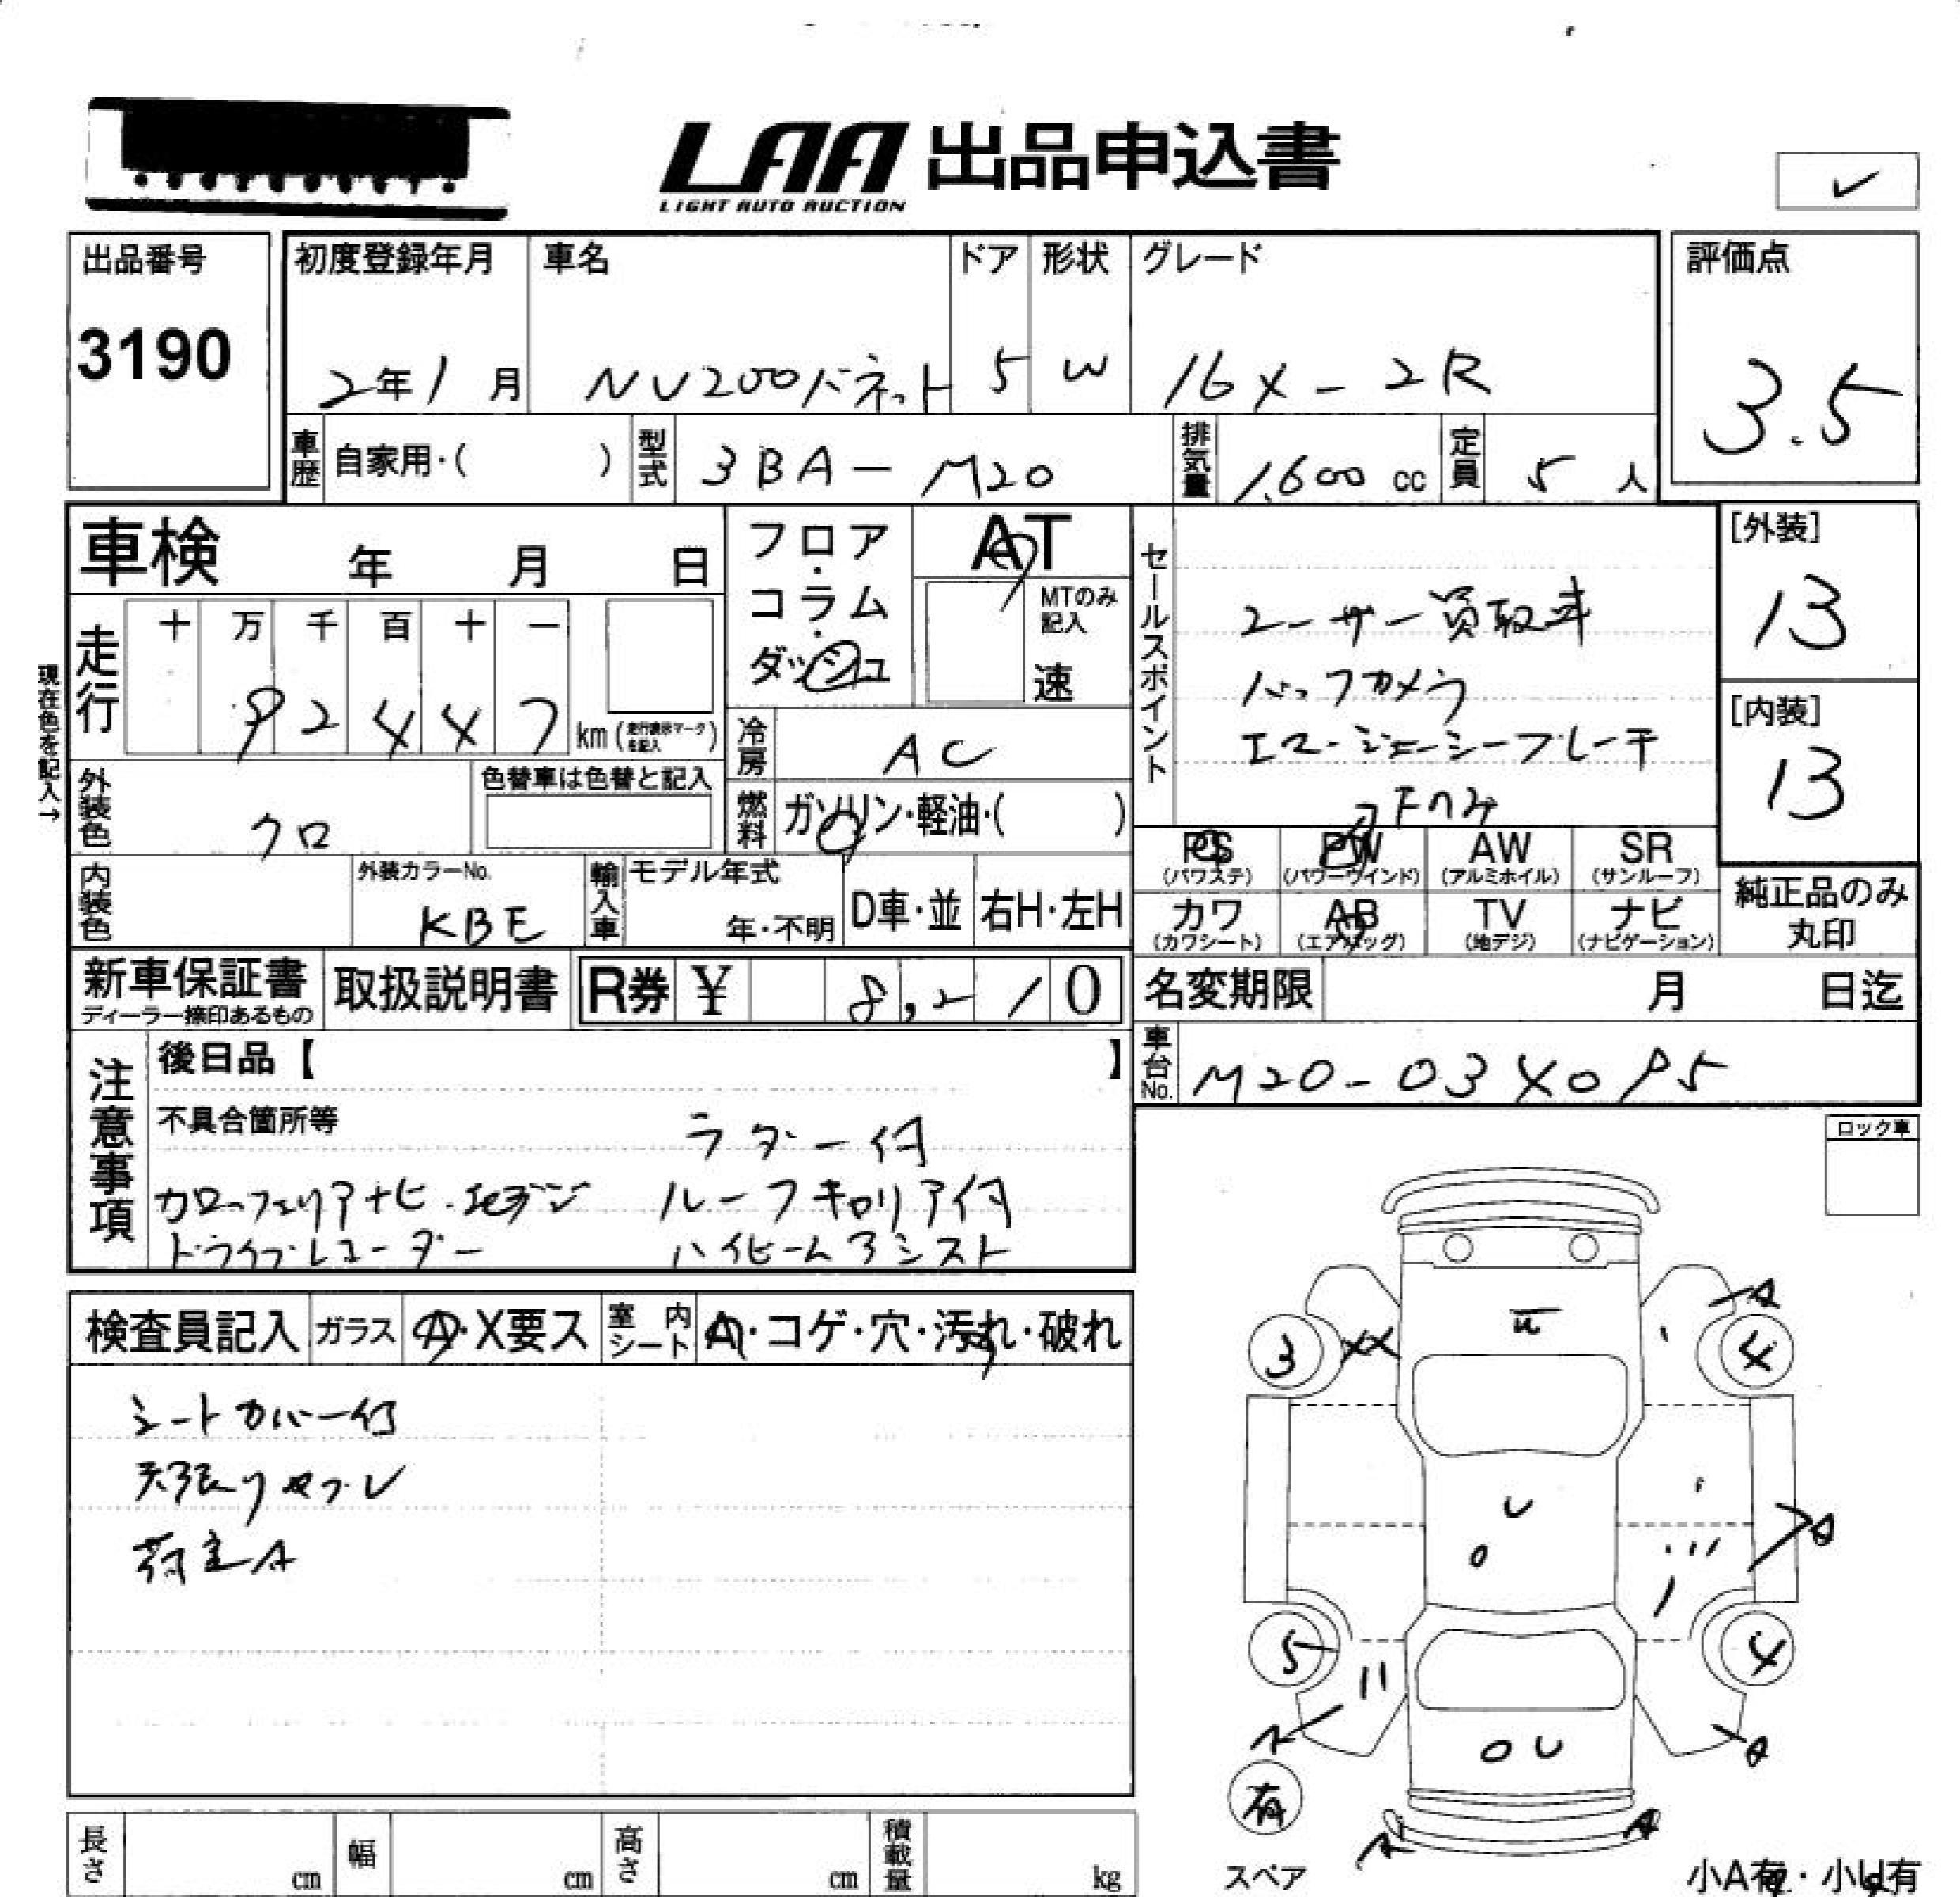 LAA 出品申込書
LIGHT AUTO AUCTION
出品番号
3190
初度登録年月
2年1月
車名
NV200バネット
ドア
5
形状
W
グレード
16X-2R
評価点
3.5
車歴 自家用・( )
型式 3BA-M20
排気量 1,600 cc
定員 5 人
車検 年 月 日
フロア・コラム・ダッシュ
AT
MTのみ記入
速
セールスポイント
ユーザー買取車
バックカメラ
エマージェンシーブレーキ
Fのみ
[外装]
13
[内装]
13
現在色を記入→
走行 十 万 千 百 十 一
92447 km (走行表示マークを記入)
冷房 AC
外装色 クロ
色替車は色替と記入
燃料 ガソリン・軽油・( )
PS (パワステ)
PW (パワーウインド)
AW (アルミホイル)
SR (サンルーフ)
カワ (カワシート)
AB (エアバッグ)
TV (地デジ)
ナビ (ナビゲーション)
純正品のみ丸印
内装色
外装カラーNo.
KBE
輸入車 モデル年式
年・不明
D車・並
右H・左H
新車保証書
ディーラー捺印あるもの
取扱説明書
R券 ¥ 8,210
名変期限 月 日迄
車台No. M20-034095
注意事項
後日品【 】
不具合箇所等
ラダー付
カロッツェリアナビ・地デジ ルーフキャリア付
ドライブレコーダー ハイビームアシスト
ロック車
検査員記入 ガラス A・X要ス 室内シート A・コゲ・穴・汚れ・破れ
シートカバー付
天張りヨゴレ
荷室A
3
XX
4
A
U
A
5
4
A
A
U
有
スペア
A
A
小A有・小U有
長さ cm 幅 cm 高さ cm 積載量 kg